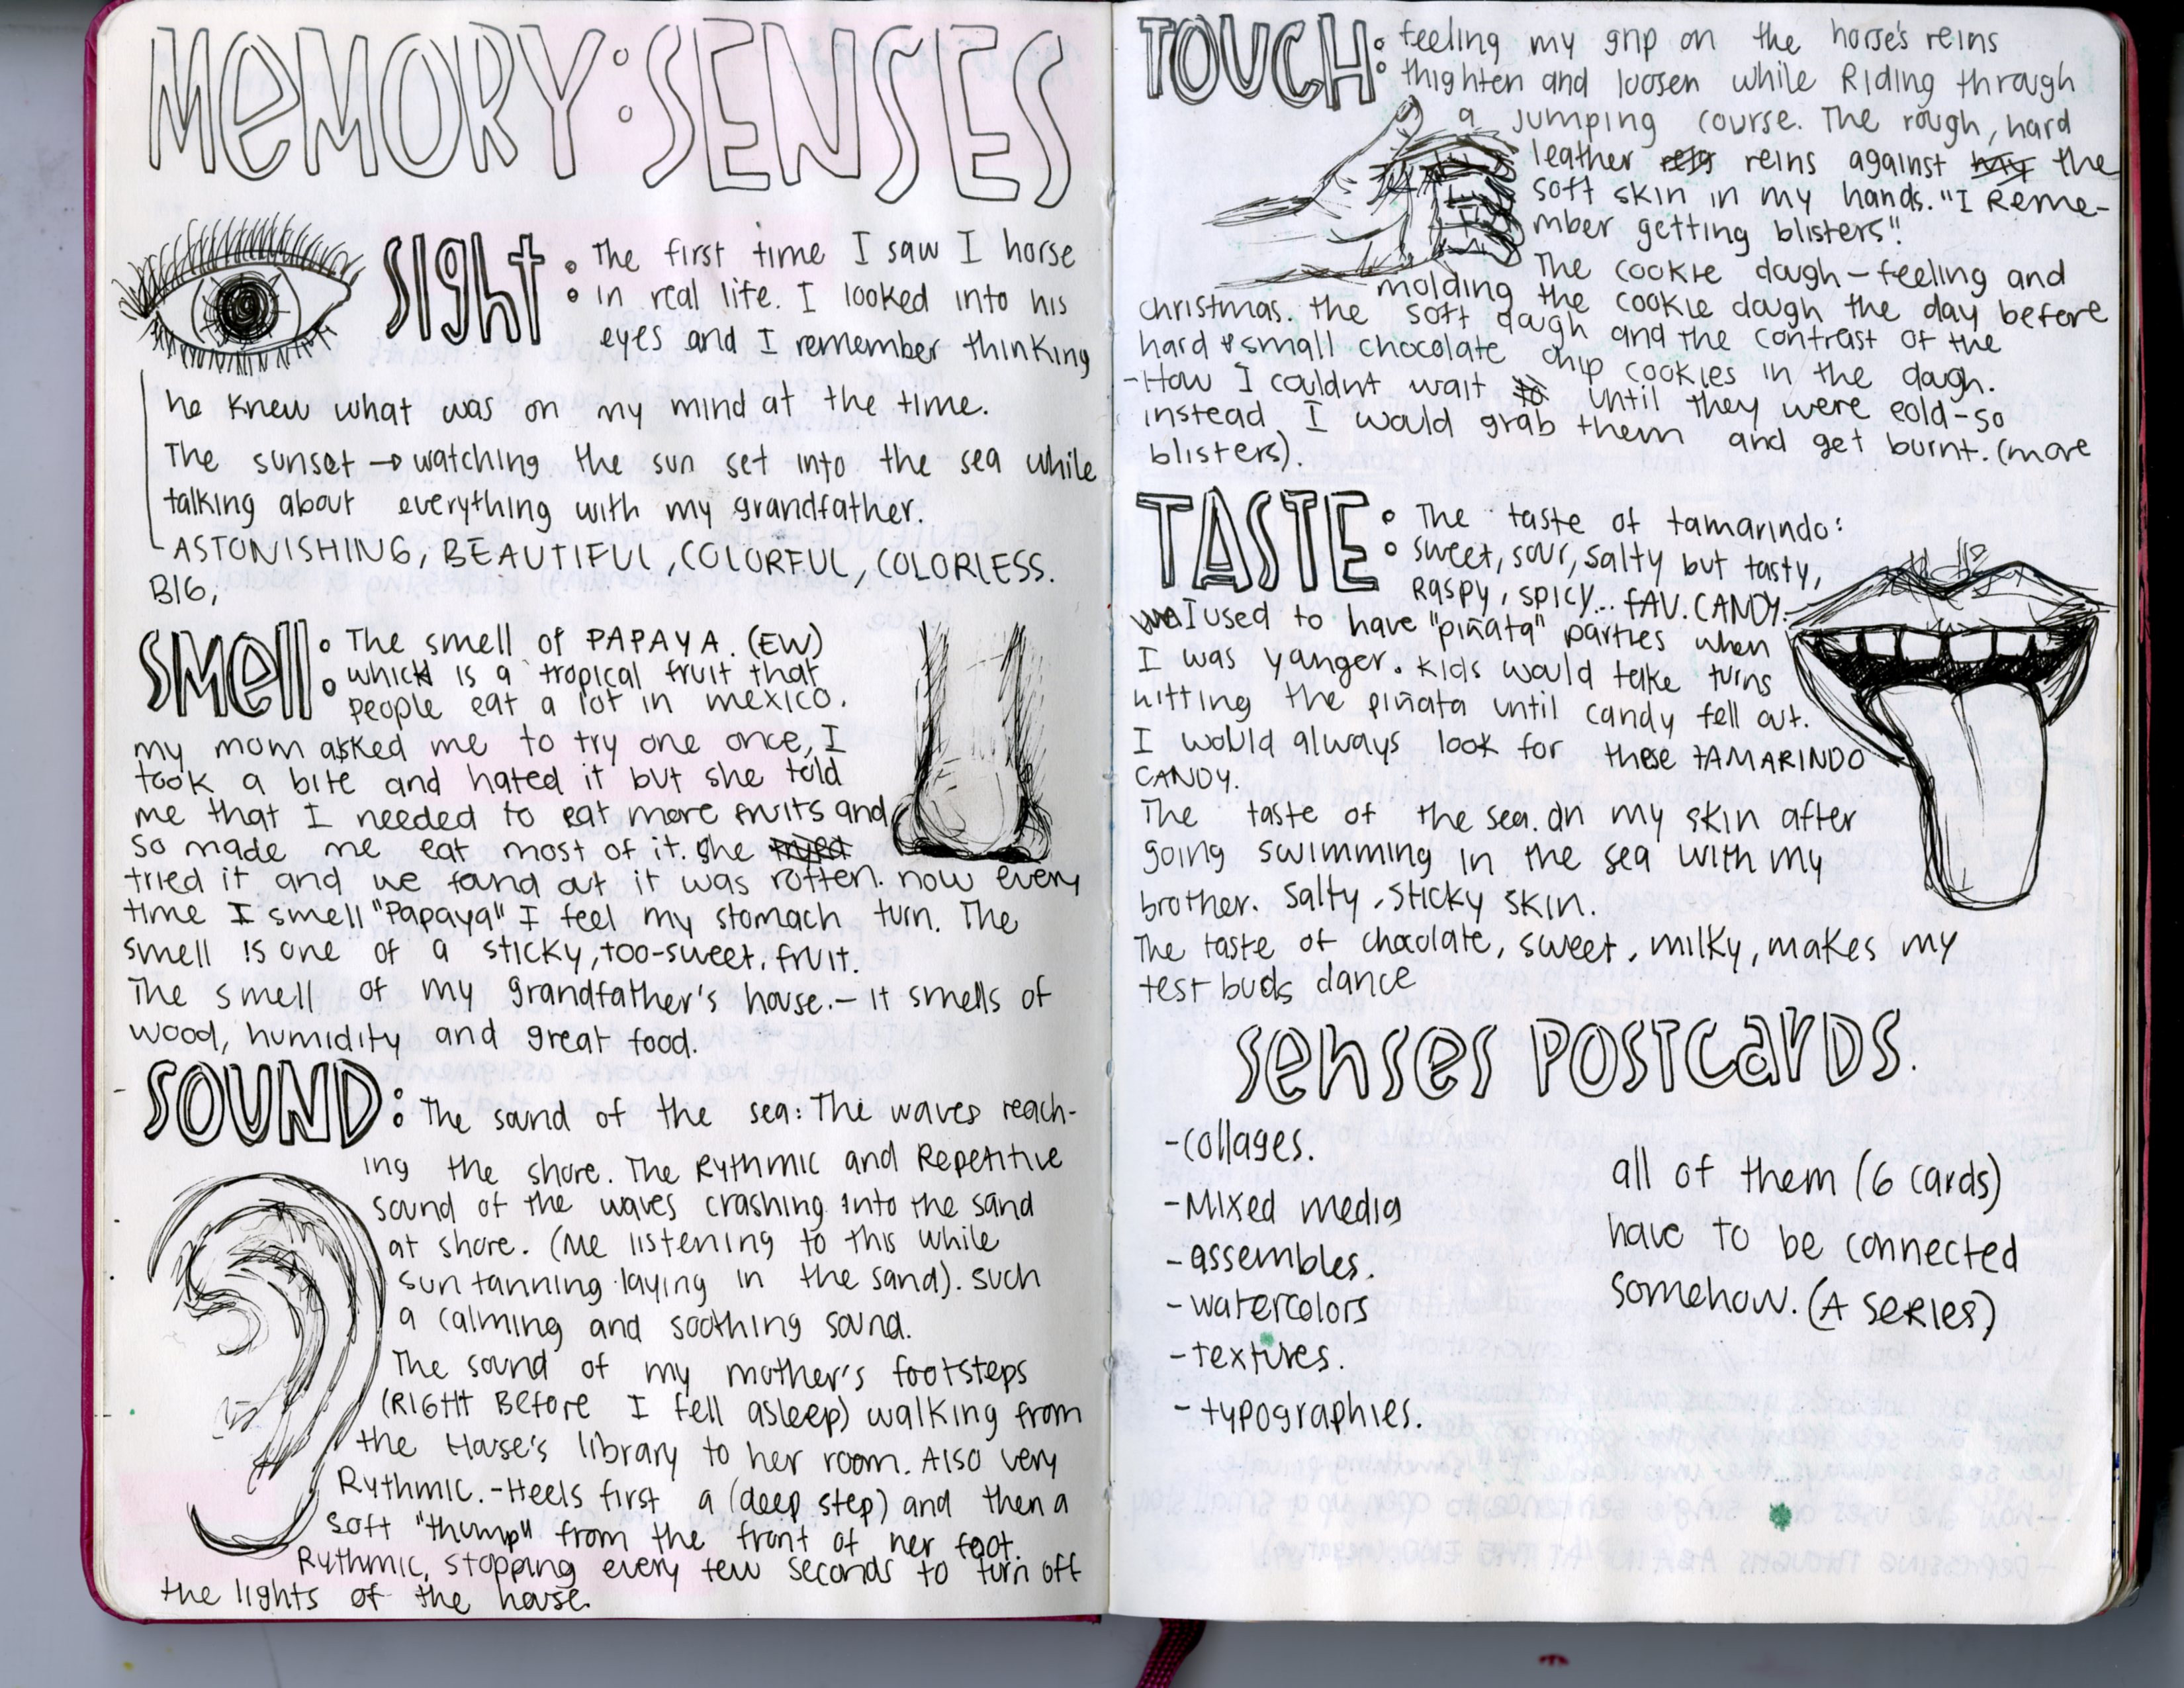 MEMORY: SENSES
SIGHT: The first time I saw I horse
in real life. I looked into his
eyes and I remember thinking
he knew what was on my mind at the time.
The sunset → watching the sun set into the sea while
talking about everything with my grandfather.
ASTONISHING, BEAUTIFUL, COLORFUL, COLORLESS.
BIG,
SMELL: The smell of PAPAYA. (EW)
which is a tropical fruit that
people eat a lot in mexico.
my mom asked me to try one once, I
took a bite and hated it but she told
me that I needed to eat more fruits and
so made me eat most of it. She tried
tried it and we found out it was rotten. now every
time I smell "Papaya" I feel my stomach turn. The
smell is one of a sticky, too-sweet, fruit.
The smell of my grandfather's house. - it smells of
wood, humidity and great food.
SOUND: The sound of the sea: The waves reach-
ing the shore. The Rythmic and Repetitive
sound of the waves crashing into the sand
at shore. (Me listening to this while
sun tanning laying in the sand). such
a calming and soothing sound.
The sound of my mother's footsteps
(RIGHT Before I fell asleep) walking from
the House's library to her room. Also very
Rythmic. - Heels first a (deep step) and then a
soft "thump" from the front of her foot.
Rythmic, stopping every few seconds to turn off
the lights of the house.
TOUCH: feeling my grip on the horse's reins
thighten and loosen while Riding through
a jumping course. The rough, hard
leather reins against my the
soft skin in my hands. "I Reme-
mber getting blisters".
The cookie dough - feeling and
molding the cookie dough the day before
christmas. the soft dough and the contrast of the
hard & small chocolate chip cookies in the dough.
- How I couldnt wait to until they were cold - so
instead I would grab them and get burnt. (more
blisters).
TASTE: The taste of tamarindo:
sweet, sour, salty but tasty,
Raspy, spicy... FAV. CANDY.
I used to have "piñata" parties when
I was yanger. kids would take turns
hitting the piñata until candy fell out.
I would always look for these TAMARINDO
CANDY.
The taste of the sea. on my skin after
going swimming in the sea with my
brother. salty, sticky skin.
The taste of chocolate, sweet, milky, makes my
test buds dance
SENSES POSTCARDS.
- collages.
- Mixed media
- assembles.
- watercolors
- textures.
- typographies.
all of them (6 cards)
have to be connected
somehow. (A SERIES)